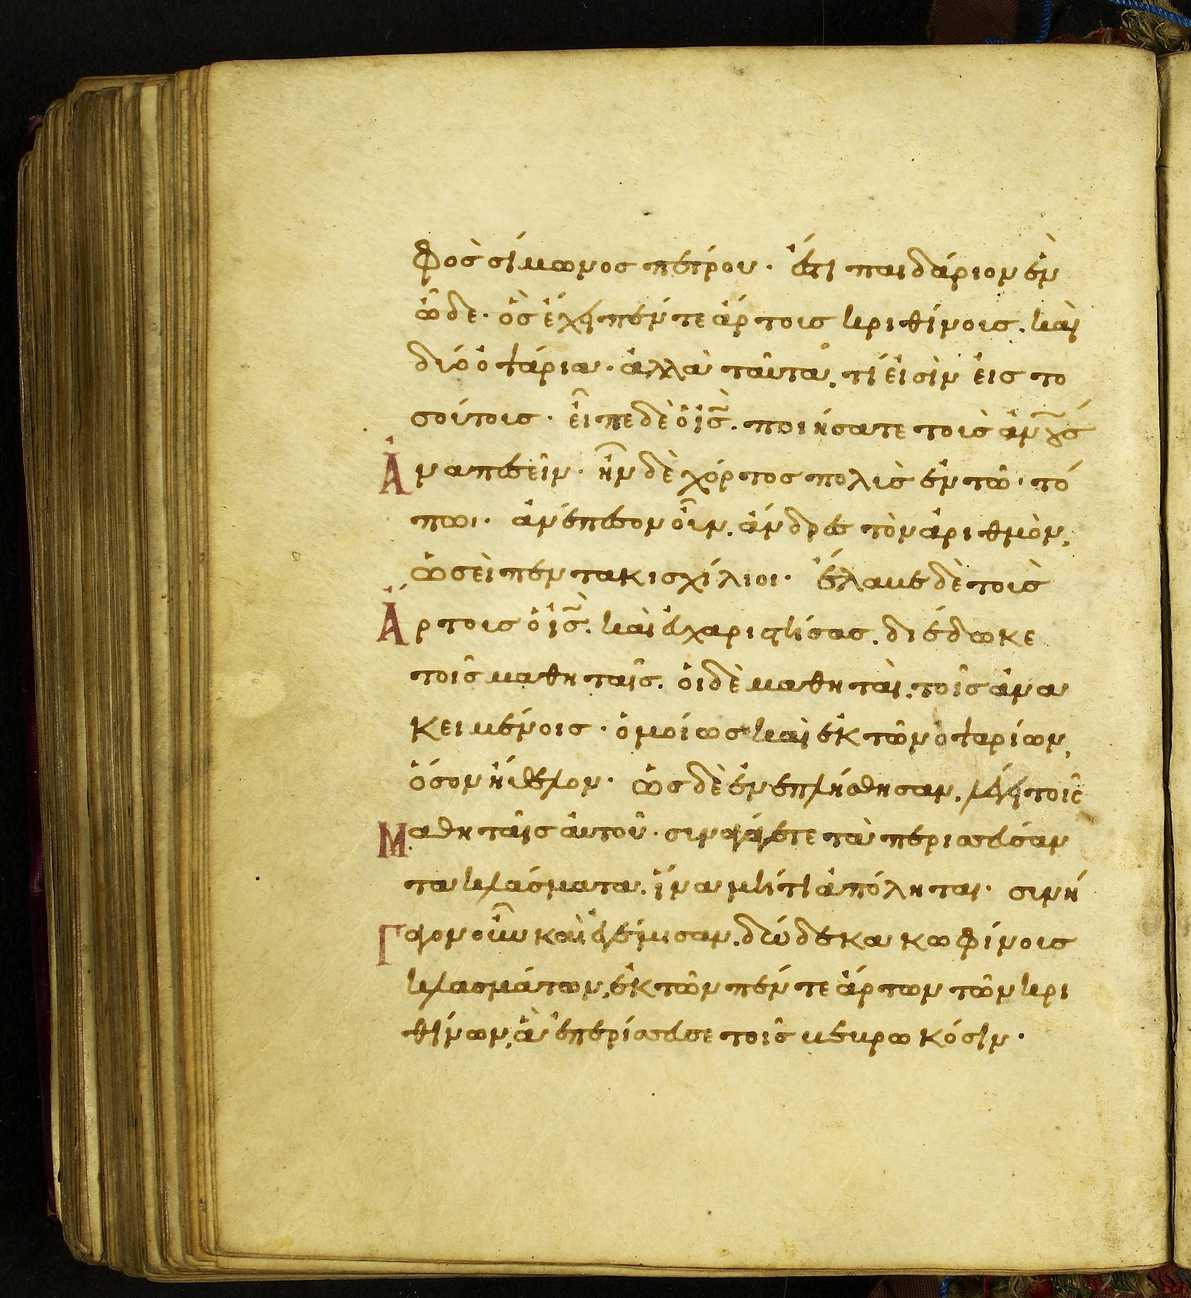 φὸς σίμωνος πέτρου· ἔτι παιδάριον ἓν
ὧδε· ὃς ἔχει πέντε ἄρτους κριθίνους, καὶ
δύο ὀψάρια· ἀλλὰ ταῦτα, τί ἐισὶν ἐις το
σούτους· εἶπε δὲ ὁ ἰς̅. ποιήσατε τοὺς ἀν̅ους
Ἀναπεσεῖν· ἦν δὲ χόρτος πολὺς ἐν τῶ τό
πωι· ἀνέπεσον οὖν, ἄνδρες τὸν ἀριθμὸν,
ὡσεὶ πεντακισχίλιοι· ἔλαβε δὲ τοὺς
Ἄρτους ὁ ἰς̅. καὶ ἐυχαριστήσας, διέδωκε
τοῖς μαθηταῖς. ὁι δὲ μαθηταὶ, τοῖς ἀνα
κειμένοις· ὁμοίως καὶ ἐκ τῶν ὀψαρίων,
ὅσον ἤθελον· ὡς δὲ ἐνεπλήσθησαν, λέγει τοῖς
Μαθηταῖς ἀυτοῦ· συναγάγετε τὰ περισσεύσαν
τα κλάσματα, ἵνα μή τι ἀπόληται· συνή
Γαγον οὖν καὶ ἐγέμισαν, δώδεκα κοφίνους
κλασμάτων, ἐκ τῶν πέντε ἄρτων τῶν κρι
θίνων, ἃ ἐπερίσσευσε τοῖς βεβρωκόσιν·